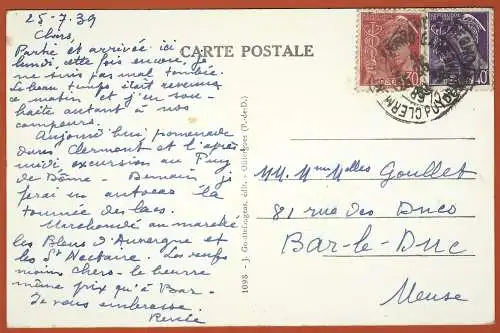 25-7-39
Chers,
Partie et arrivée ici
lundi, cette fois encore, je
ne suis pas mal tombée.
Le beau temps était revenu
ce matin et j'en sou-
haite autant à nos
campeurs.
Aujourd'hui promenade
dans Clermont et l'après
midi, excursion au Puy
de Dôme. Demain je
ferai en autocar la
tournée des lacs.
Marchandé au marché
les Bleus d'Auvergne et
les St Nectaire. Les oeufs
moins chers - le beurre
même prix qu'à Bar.
Je vous embrasse.
Renée
CARTE POSTALE
1098 - J. Gouttefangeas, édit. - Olliergues (P.-de-D.)
30
40
CLERM
MM. Mme Melles Goullet
81 rue des Ducs
Bar-le-Duc
Meuse